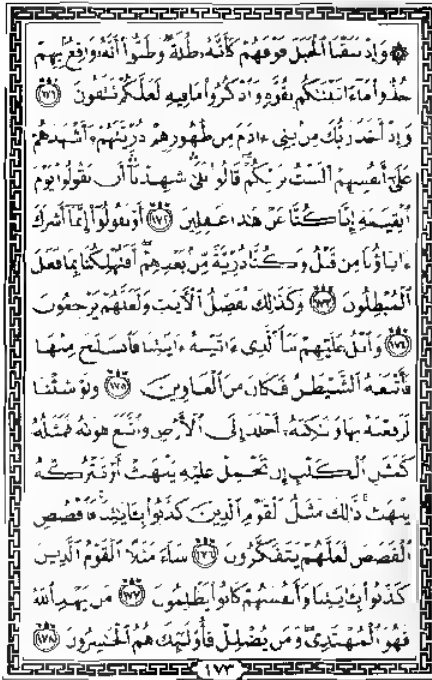 ۞ وَإِذْ نَتَقْنَا ٱلْجَبَلَ فَوْقَهُمْ كَأَنَّهُۥ ظُلَّةٌ وَظَنُّوٓا۟ أَنَّهُۥ وَاقِعٌۢ بِهِمْ
خُذُوا۟ مَآ ءَاتَيْنَٰكُم بِقُوَّةٍ وَٱذْكُرُوا۟ مَا فِيهِ لَعَلَّكُمْ تَتَّقُونَ ١٧١
وَإِذْ أَخَذَ رَبُّكَ مِنۢ بَنِىٓ ءَادَمَ مِن ظُهُورِهِمْ ذُرِّيَّتَهُمْ وَأَشْهَدَهُمْ
عَلَىٰٓ أَنفُسِهِمْ أَلَسْتُ بِرَبِّكُمْ قَالُوا۟ بَلَىٰ شَهِدْنَآ أَن تَقُولُوا۟ يَوْمَ
ٱلْقِيَٰمَةِ إِنَّا كُنَّا عَنْ هَٰذَا غَٰفِلِينَ ١٧٢ أَوْ تَقُولُوٓا۟ إِنَّمَآ أَشْرَكَ
ءَابَآؤُنَا مِن قَبْلُ وَكُنَّا ذُرِّيَّةً مِّنۢ بَعْدِهِمْ أَفَتُهْلِكُنَا بِمَا فَعَلَ
ٱلْمُبْطِلُونَ ١٧٣ وَكَذَٰلِكَ نُفَصِّلُ ٱلْءَايَٰتِ وَلَعَلَّهُمْ يَرْجِعُونَ
١٧٤ وَٱتْلُ عَلَيْهِمْ نَبَأَ ٱلَّذِىٓ ءَاتَيْنَٰهُ ءَايَٰتِنَا فَٱنسَلَخَ مِنْهَا
فَأَتْبَعَهُ ٱلشَّيْطَٰنُ فَكَانَ مِنَ ٱلْغَاوِينَ ١٧٥ وَلَوْ شِئْنَا
لَرَفَعْنَٰهُ بِهَا وَلَٰكِنَّهُۥٓ أَخْلَدَ إِلَى ٱلْأَرْضِ وَٱتَّبَعَ هَوَىٰهُ فَمَثَلُهُۥ
كَمَثَلِ ٱلْكَلْبِ إِن تَحْمِلْ عَلَيْهِ يَلْهَثْ أَوْ تَتْرُكْهُ
يَلْهَث ذَّٰلِكَ مَثَلُ ٱلْقَوْمِ ٱلَّذِينَ كَذَّبُوا۟ بِـَٔايَٰتِنَا فَٱقْصُصِ
ٱلْقَصَصَ لَعَلَّهُمْ يَتَفَكَّرُونَ ١٧٦ سَآءَ مَثَلًا ٱلْقَوْمُ ٱلَّذِينَ
كَذَّبُوا۟ بِـَٔايَٰتِنَا وَأَنفُسَهُمْ كَانُوا۟ يَظْلِمُونَ ١٧٧ مَن يَهْدِ ٱللَّهُ
فَهُوَ ٱلْمُهْتَدِى وَمَن يُضْلِلْ فَأُو۟لَٰٓئِكَ هُمُ ٱلْخَٰسِرُونَ ١٧٨
١٧٣